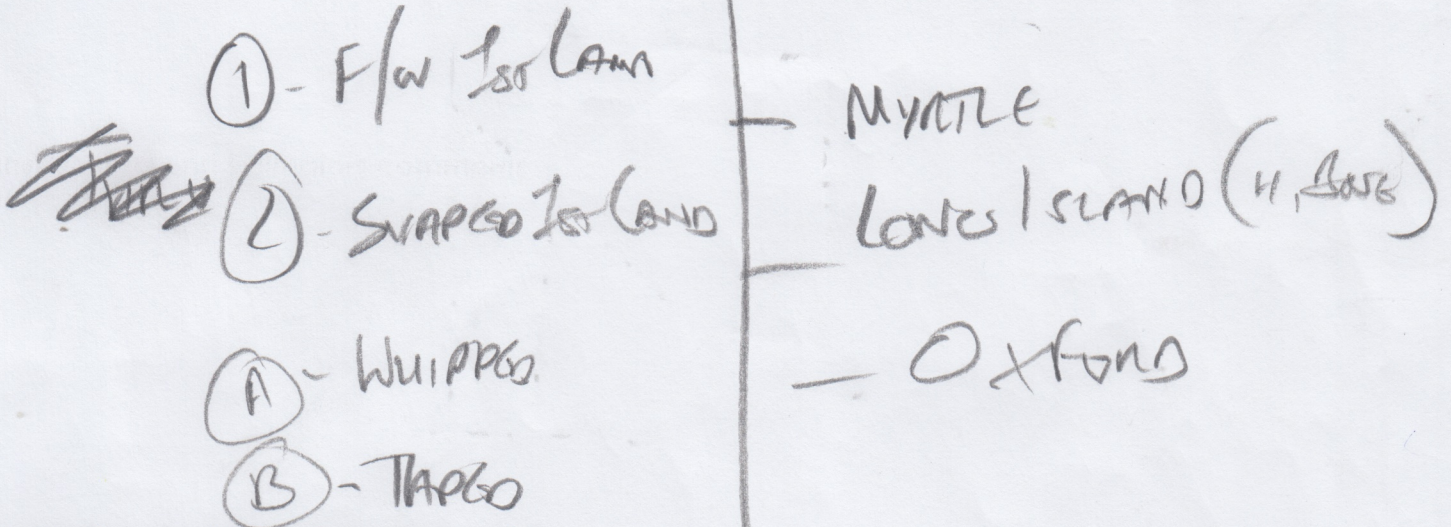 ① - F/W 1st Land
② - SHAPED 1st LAND
Ⓐ - WHIPPED
Ⓑ - TAPED
MYRTLE
LONG ISLAND (H, BONE)
- OXFORD